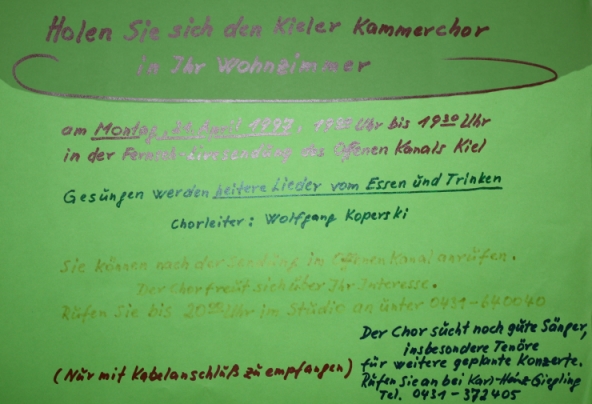 Holen Sie sich den Kieler Kammerchor
in Ihr Wohnzimmer
am Montag, April 1997, Uhr bis 19³⁰ Uhr
in der Fernseh-Livesendung des Offenen Kanals Kiel
Gesungen werden heitere Lieder vom Essen und Trinken
Chorleiter: Wolfgang Koperski
Sie können nach der Sendung im Offenen Kanal anrufen.
Der Chor freut sich über Ihr Interesse.
Rufen Sie bis 20⁰⁰ Uhr im Studio an unter 0431-640040
Der Chor sucht noch gute Sänger,
insbesondere Tenöre
für weitere geplante Konzerte.
(Nur mit Kabelanschluß zu empfangen)
Rufen Sie an bei Karl-Heinz Giepling
Tel. 0431-372405